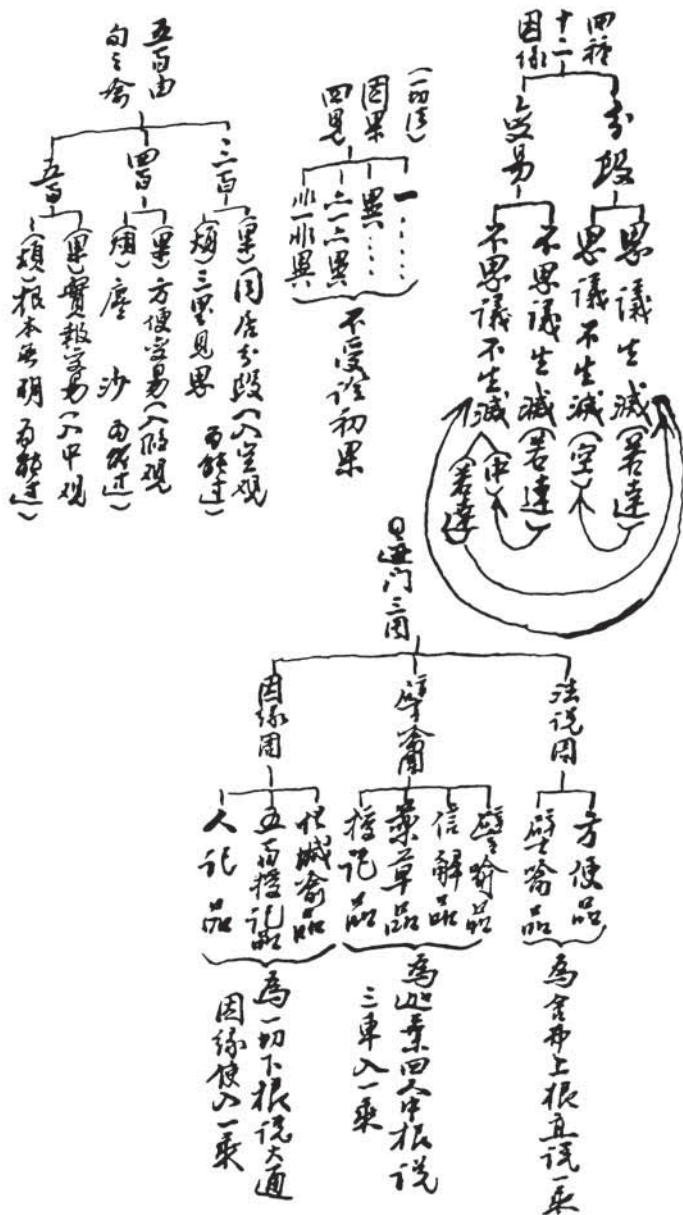 四種
十二
因緣
分段
思議生滅(若達)
思議不生滅(空)
變易
不思議生滅(若達)
不思議不生滅(中)
(若達)
(一切法)
因果
四見
一……
異……
亦一亦異
非一非異
不受證初果
五百由
旬之喻
三百
(果)同居分段(入空觀
(煩)三界見思 為能過)
四百
(果)方便變易(入假觀
(煩)塵沙 為能過)
五百
(果)實報變易(入中觀
(煩)根本無明 為能過)
迹门三周
法说周
方便品
譬喻品
為舍弗上根直说一乘
譬喻周
譬喻品
信解品
藥草品
授记品
為迦葉四人中根说
三車入一乘
因緣周
化城喻品
五百授记品
人记品
為一切下根说大通
因緣使入一乘